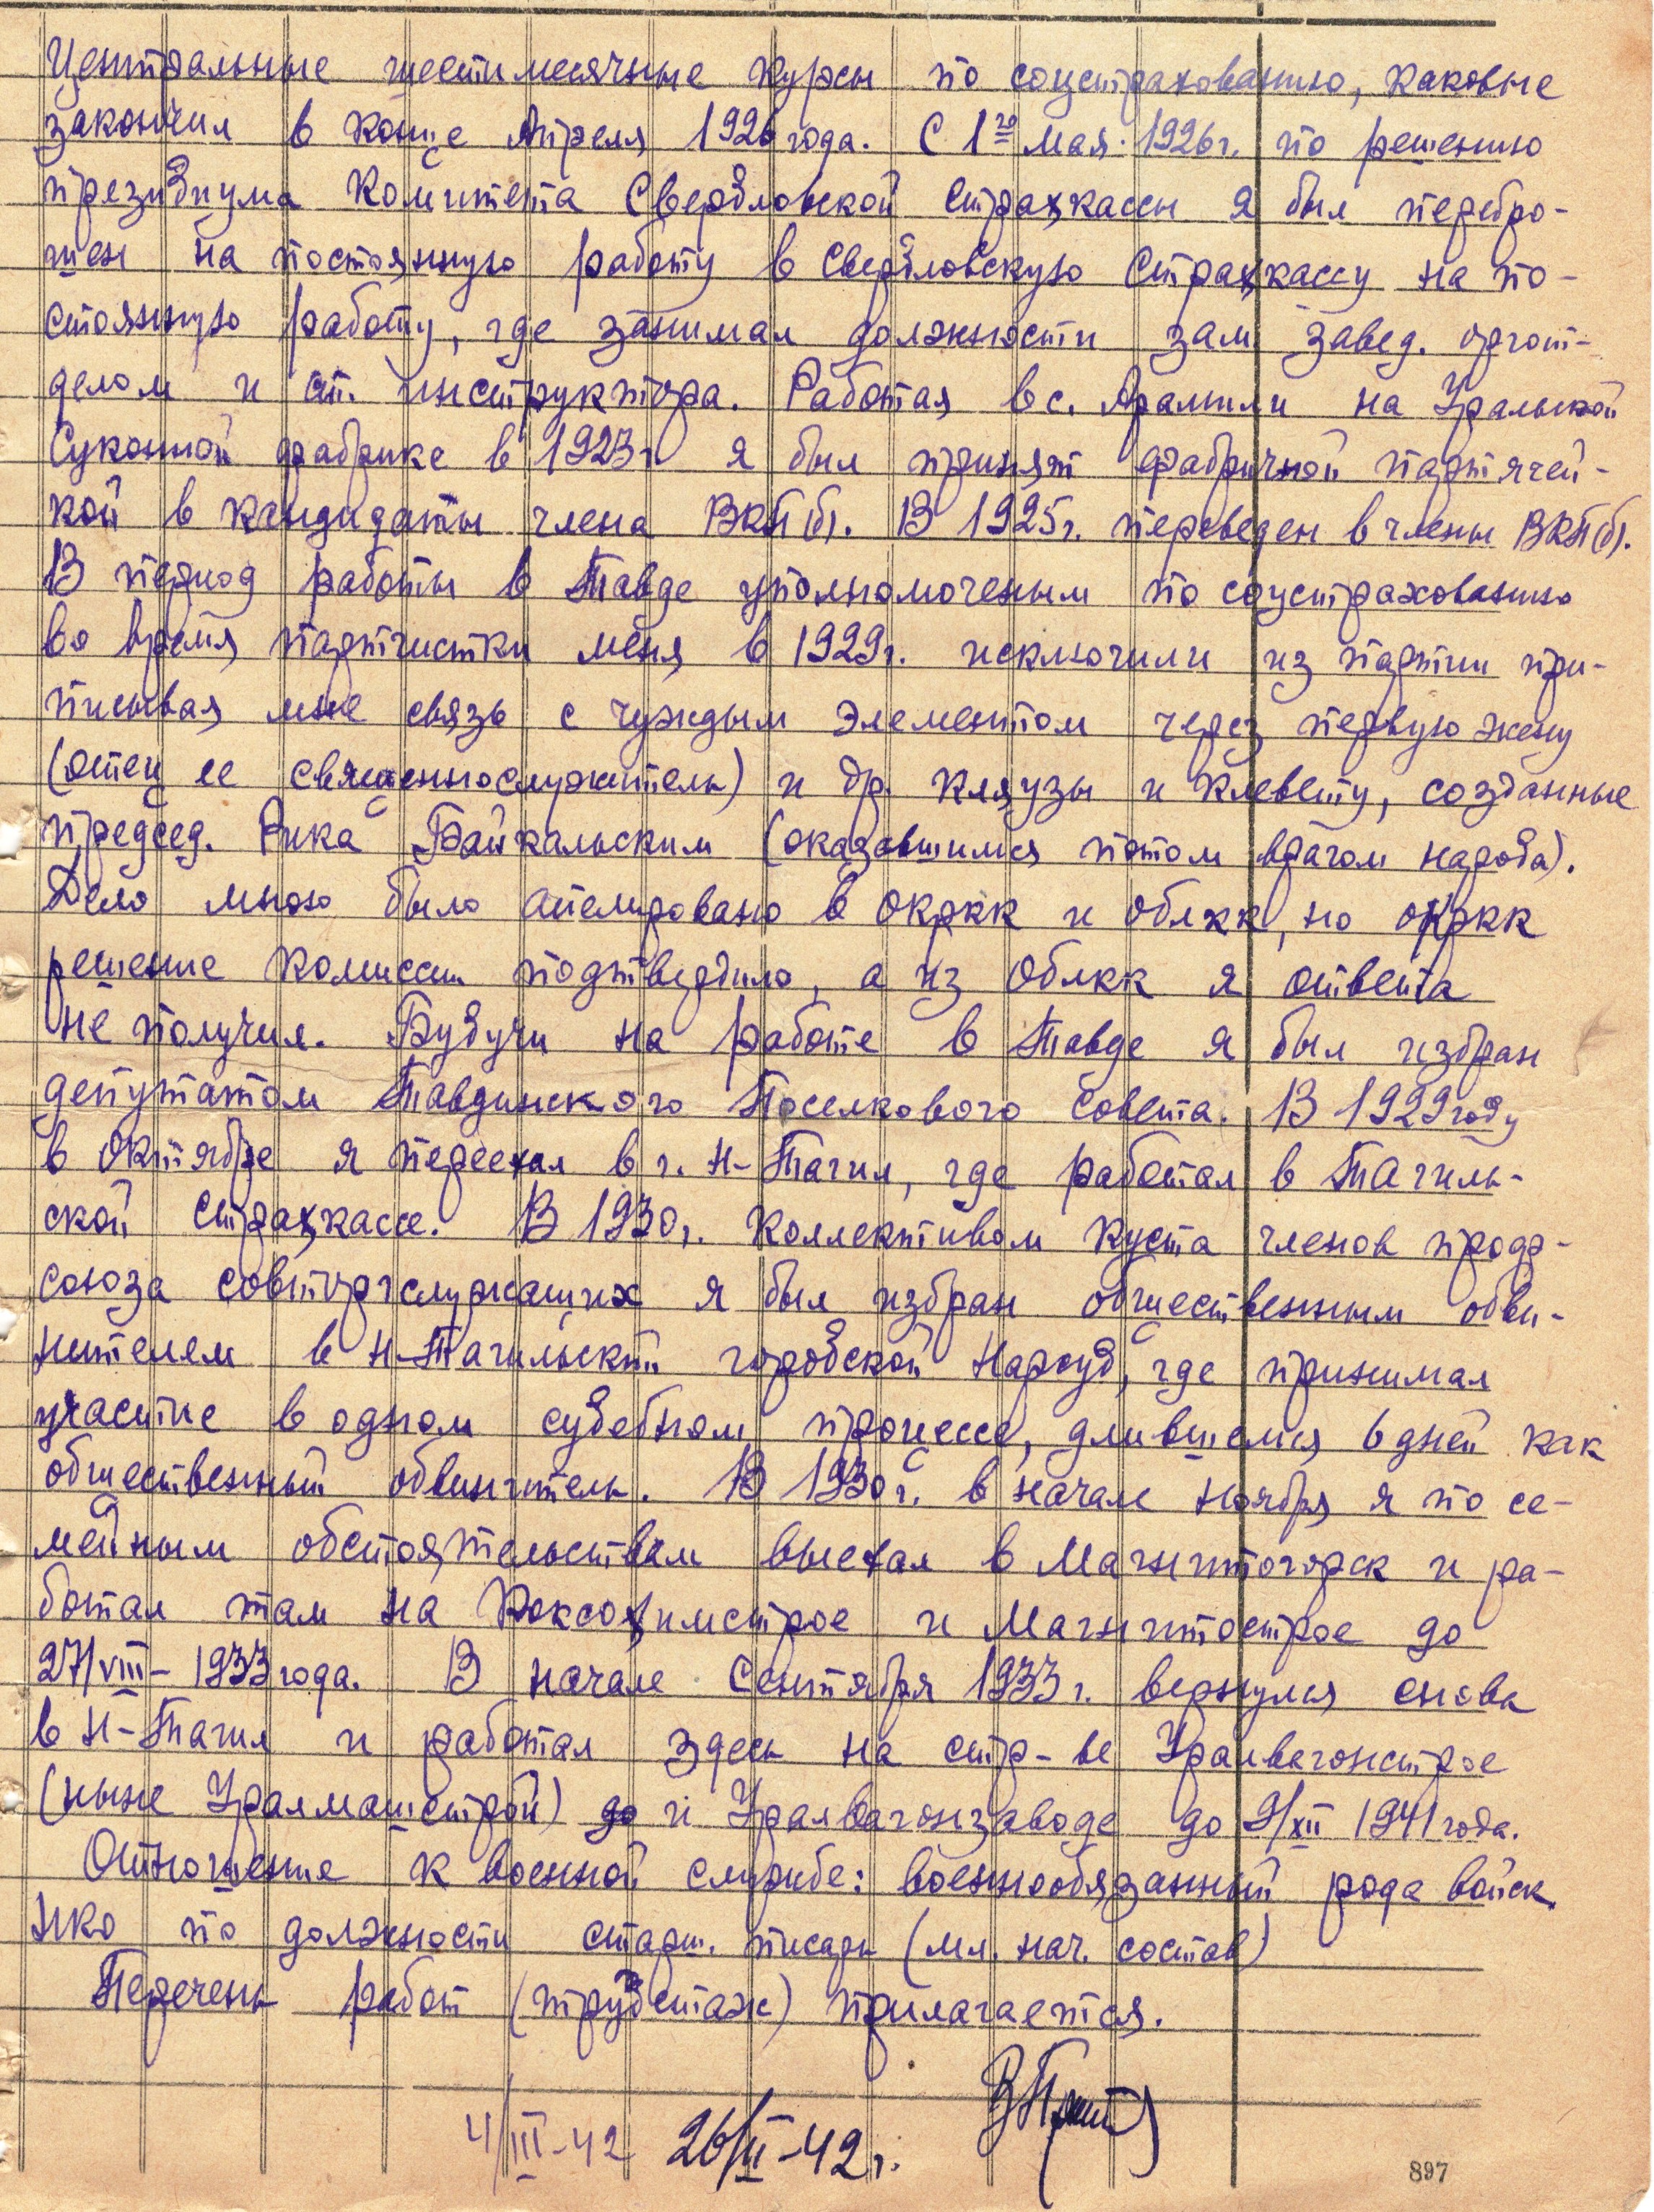 Центральные шестимесячные курсы по соцстрахованию, каковые
закончил в конце Апреля 1926 года. С 1го Мая 1926г. по решению
президиума Комитета Свердловской Страхкассы я был перебро-
шен на постоянную работу в Свердловскую Страхкассу на по-
стоянную работу, где занимал должности зам. завед. оргот-
делом и ст. инструктора. Работая в с. Арамили на Уральской
Суконной фабрике в 1923г я был принят фабричной партячей-
кой в кандидаты члена ВКП(б). В 1925г. переведен в члены ВКП(б).
В период работы в Тавде уполномоченым по соцстрахованию
во время партчистки меня в 1929г. исключили из партии при-
писывая мне связь с чуждым элементом через первую жену
(отец ее священнослужитель) и др. кляузы и клевету, созданные
председ. Рика Байкальским (оказавшимся потом врагом народа).
Дело мною было апелировано в ОкрКК и ОблКК, но ОкрКК
решение комиссии подтвердило, а из ОблКК я ответа
не получил. Будучи на работе в Тавде я был избран
депутатом Тавдинского Поселкового Совета. В 1929 году
в Октябре я переехал в г. Н-Тагил, где работал в Тагиль-
ской Страхкассе. В 1930г. коллективом куста членов проф-
союза совторгслужащих я был избран общественным обви-
нителем в Н-Тагильский городской Нарсуд, где принимал
участие в одном судебном процессе, длившемся 6 дней как
общественный обвинитель. В 1930г. в начале Ноября я по се-
мейным обстоятельствам выехал в Магнитогорск и ра-
ботал там на Коксохимстрое и Магнитострое до
27/VIII-1933 года. В начале Сентября 1933г. вернулся снова
в Н-Тагил и работал здесь на стр-ве Уралвагонстрое
(ныне Уралмашстрой) до и Уралвагонзаводе до 9/XII 1941 года.
Отношение к военной службе: военнообязанный рода войск
НКО по должности старш. писарь (мл. нач. состав)
Перечень работ (трудстаж) прилагается.
4/III-42 26/II-42г.
897